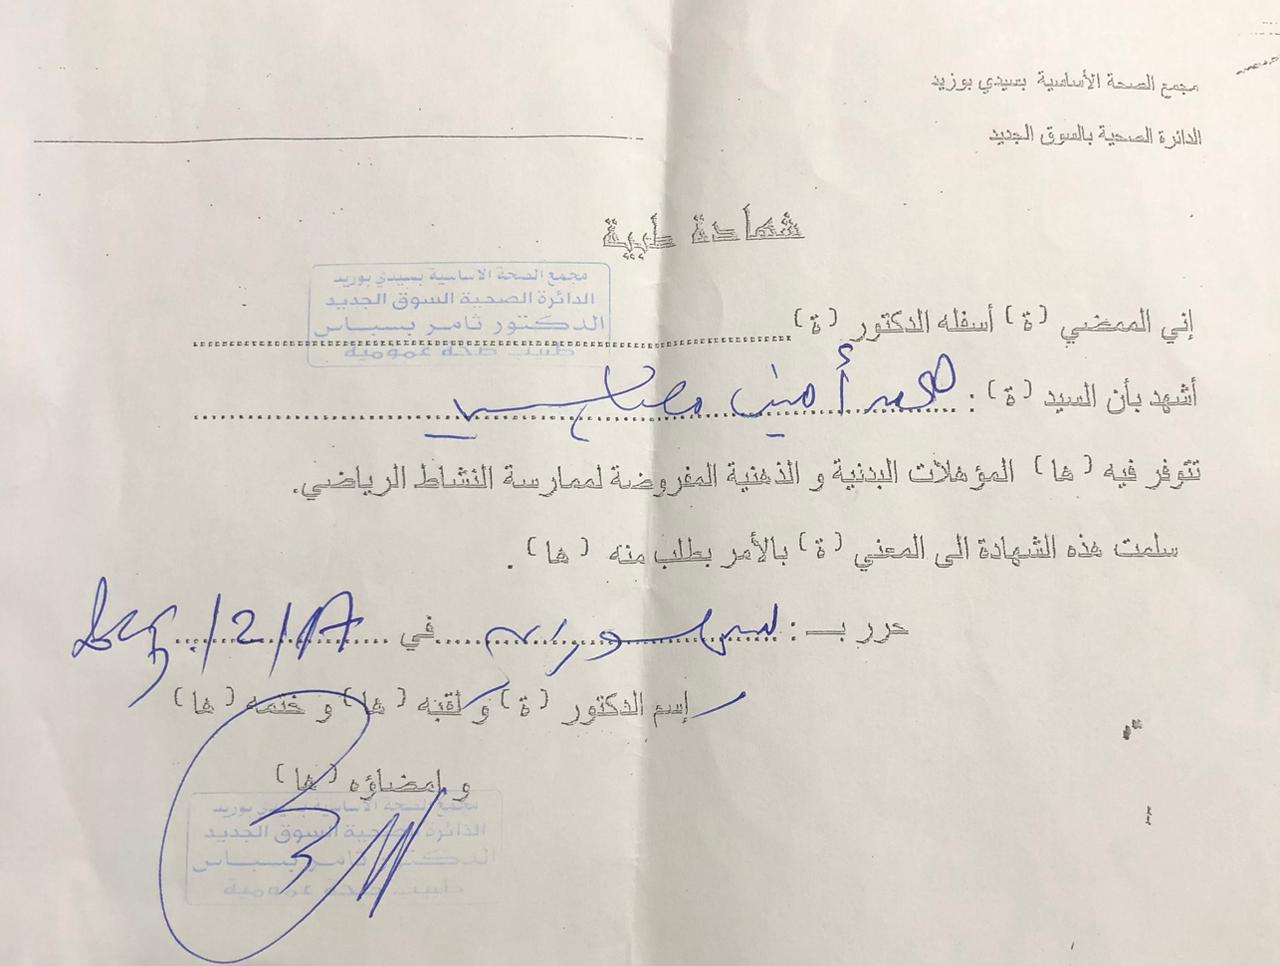 مجمع الصحة الأساسية بسيدي بوزيد
الدائرة الصحية بالسوق الجديد
شهادة طبية
مجمع الصحة الاساسية بسيدي بوزيد
الدائرة الصحية السوق الجديد
الدكتور ثامر بسباس
طبيب صحة عمومية
إني الممضي (ة) أسفله الدكتور (ة)
أشهد بأن السيد (ة) : محمد أمين
تتوفر فيه (ها) المؤهلات البدنية و الذهنية المفروضة لممارسة النشاط الرياضي.
سلمت هذه الشهادة الى المعني (ة) بالأمر بطلب منه (ها) .
حرر بـ : في
إسم الدكتور (ة) و لقبه (ها) و ختمه (ها)
و إمضاؤه (ها)
مجمع الصحة الاساسية بسيدي بوزيد
الدائرة الصحية السوق الجديد
الدكتور ثامر بسباس
طبيب صحة عمومية